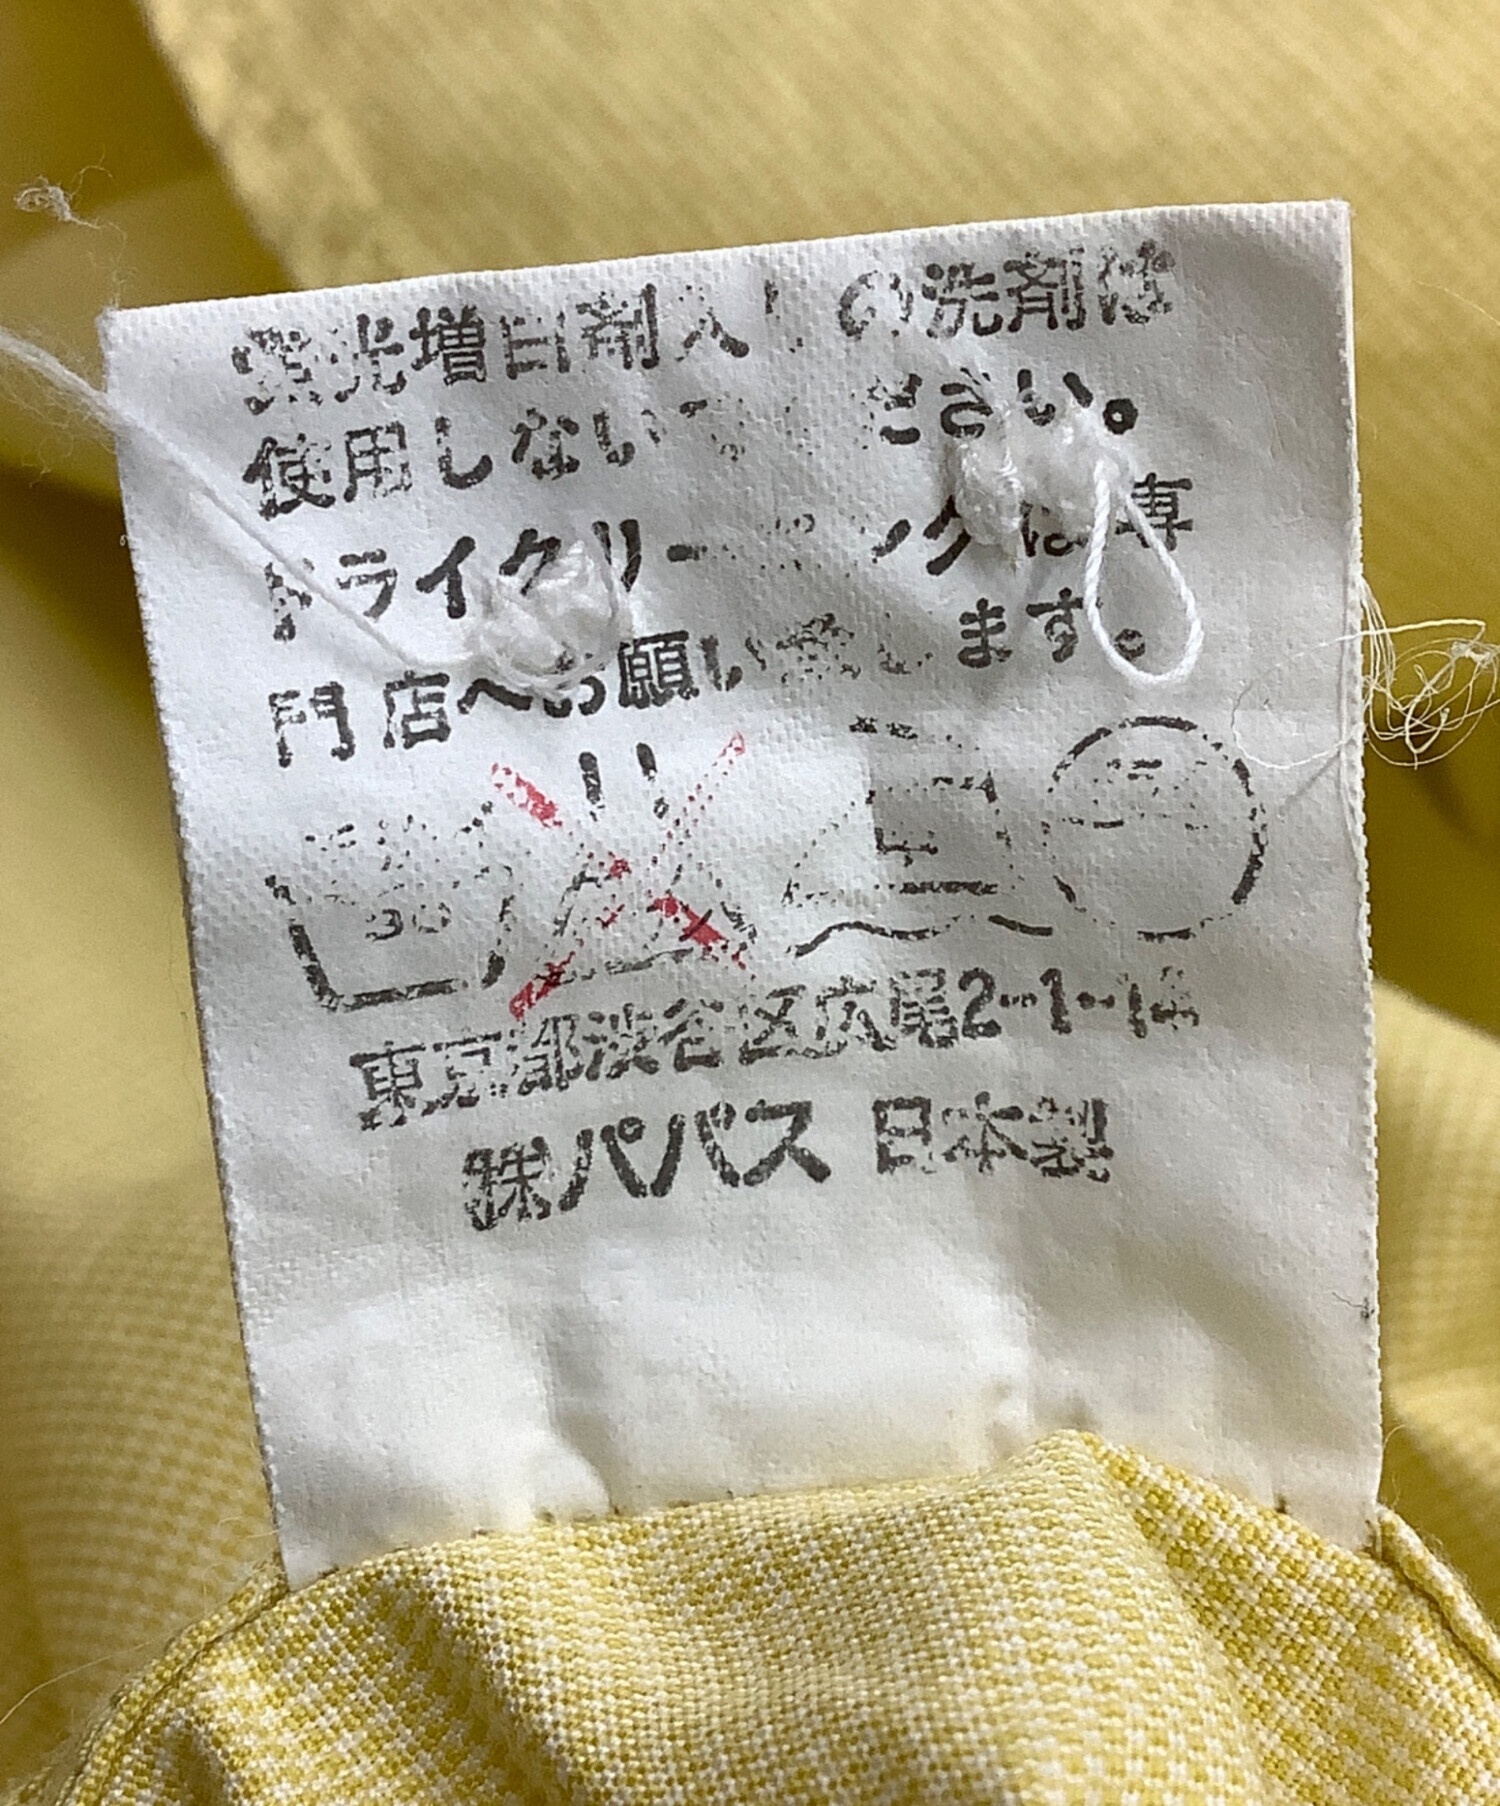 蛍光増白剤入りの洗剤は
使用しないで ださい。
ドライクリーニングは専
門店へお願い します。
30
中
東京都渋谷区広尾2-1-14
㈱パパス 日本製